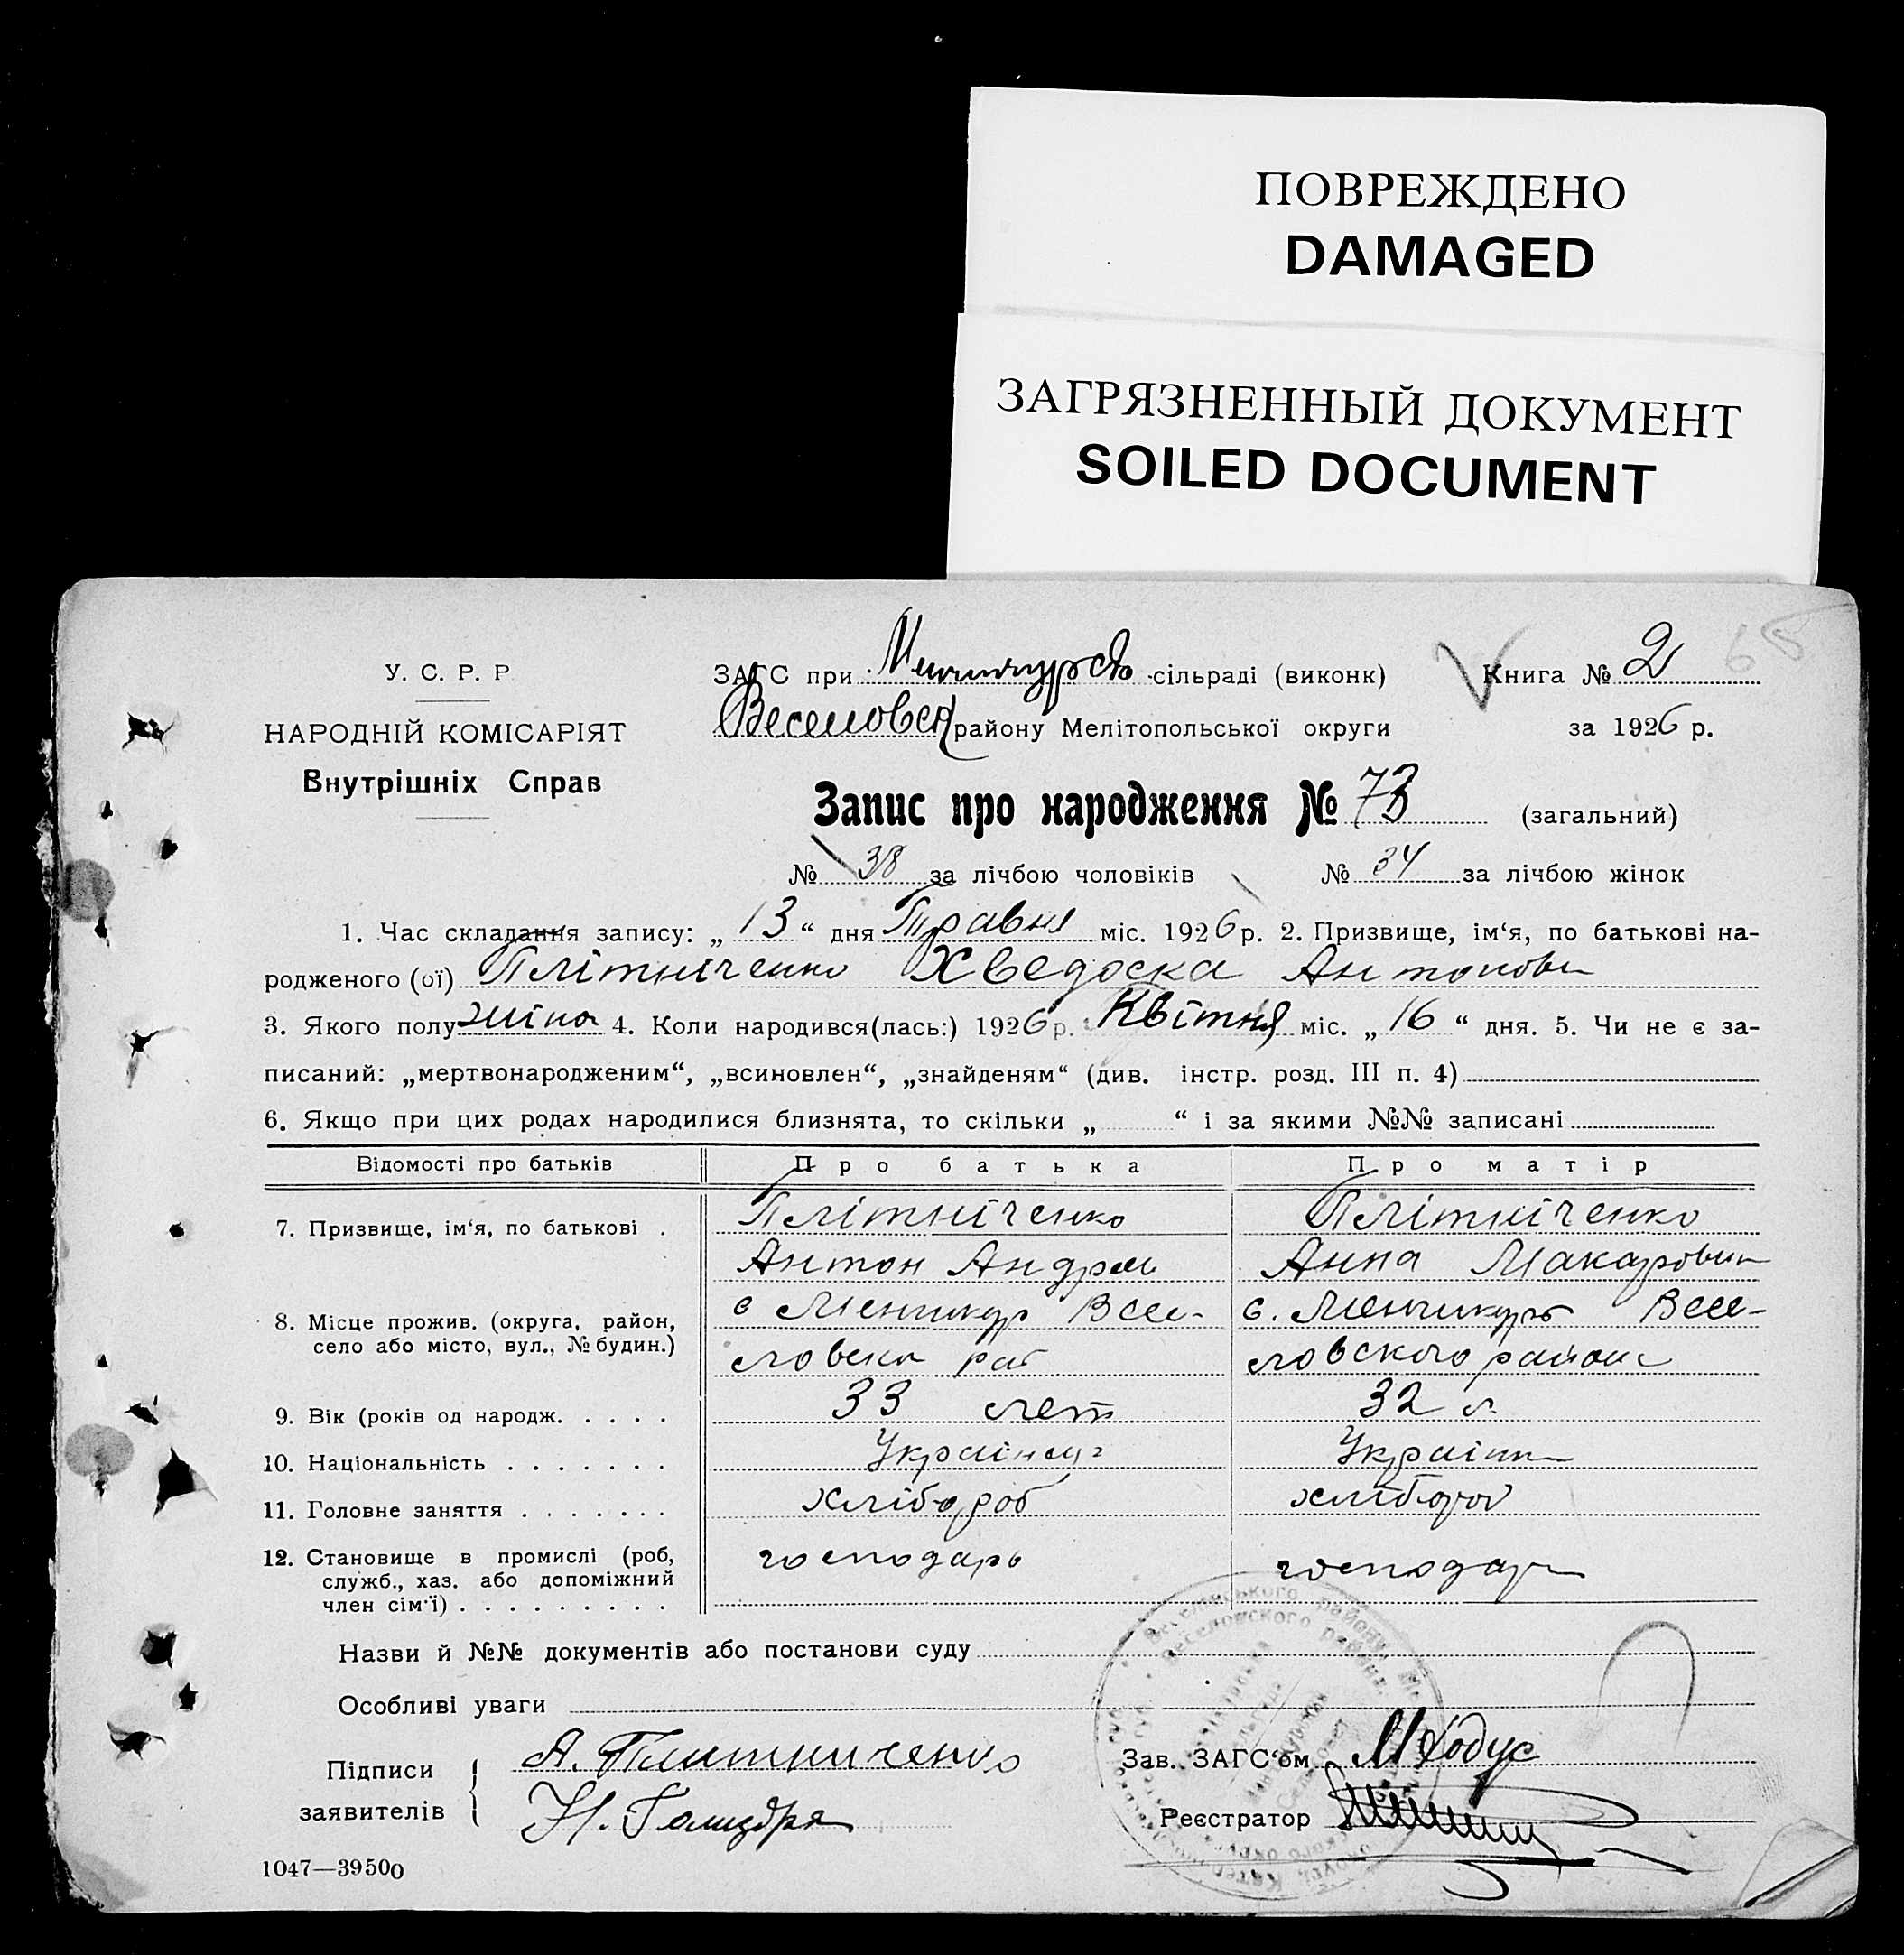 ПОВРЕЖДЕНО
DAMAGED
ЗАГРЯЗНЕННЫЙ ДОКУМЕНТ
SOILED DOCUMENT
У. С. Р. Р
НАРОДНІЙ КОМІСАРІЯТ
Внутрішніх Справ
ЗАГС при сільраді (виконк) Книга № 2
району Мелітопольської округи за 1926 р.
Запис про народження № 73 (загальний)
№ 38 за лічбою чоловіків № 34 за лічбою жінок
1. Час складання запису: „ 13 “ дня Травня міс. 1926 р. 2. Призвище, ім‘я, по батькові на-
родженого (ої) Плітніченко Хведоска Антонови
3. Якого полу жіно 4. Коли народився(лась:) 1926 р. Квітня міс. „ 16 “ дня. 5. Чи не є за-
писаний: „мертвонародженим“, „всиновлен“, „знайденям“ (див. інстр. розд. III п. 4)
6. Якщо при цих родах народилися близнята, то скільки „ “ і за якими №№ записані
Відомості про батьків Про батька Про матір
7. Призвище, ім‘я, по батькові . Плітніченко Плітніченко
Антон Андре Анна Макарови
8. Місце прожив. (округа, район, с Менчикур Весе- с. Менчикур Весе-
село або місто, вул., № будин.) ловск ра ловского район
9. Вік (років од народж. . . . . 33 лет 32 л.
10. Національність . . . . . . . Українец Українк
11. Головне заняття . . . . . . . хлібороб хлібороб
12. Становище в промислі (роб, господарь господар
служб., хаз. або допоміжний
член сім‘ї) . . . . . . . . .
Назви й №№ документів або постанови суду
Особливі уваги
Підписи А. Плитниченко Зав. ЗАГС‘ом
заявителів Реєстратор
1047—39500